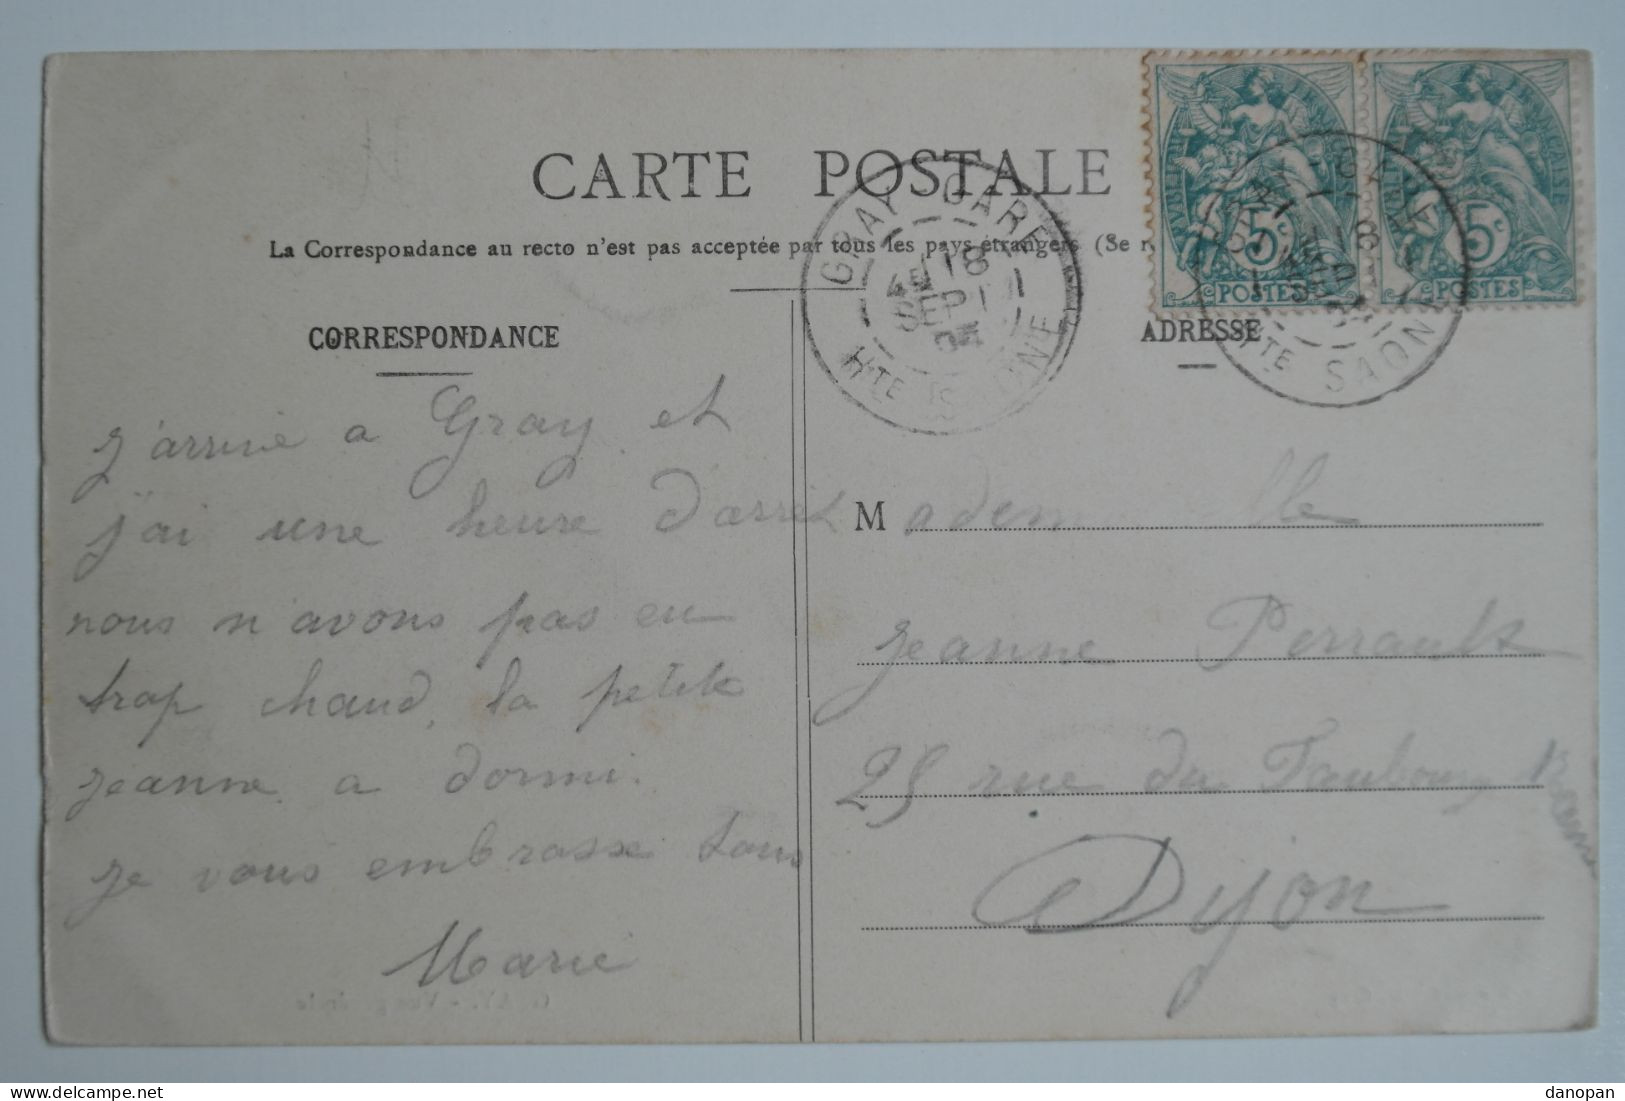 CARTE POSTALE
La Correspondance au recto n'est pas acceptée par tous les pays étrangers (Se r
CORRESPONDANCE
ADRESSE
GRAY GARE
18
SEPT
Hte SAONE
5c
POSTES
5c
POSTES
18
Hte SAONE
j'arrive a Gray et
j'ai une heure d'arrêt
nous n'avons pas eu
trop chaud, la petite
jeanne a dormi.
je vous embrasse tous
Marie
Mademoiselle
jeanne Perrault
25 rue du Faubourg
Dijon
danopan
delcampe.net